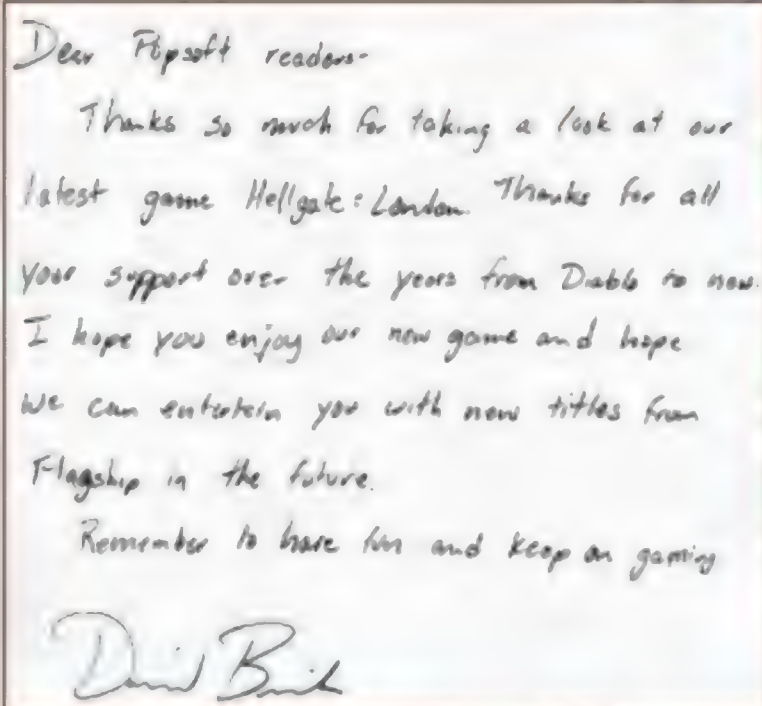 Dear Popsoft readers-
Thanks so much for taking a look at our
latest game Hellgate: London. Thanks for all
your support over the years from Diablo to now.
I hope you enjoy our new game and hope
we can entertain you with new titles from
Flagship in the future.
Remember to have fun and keep on gaming
David B